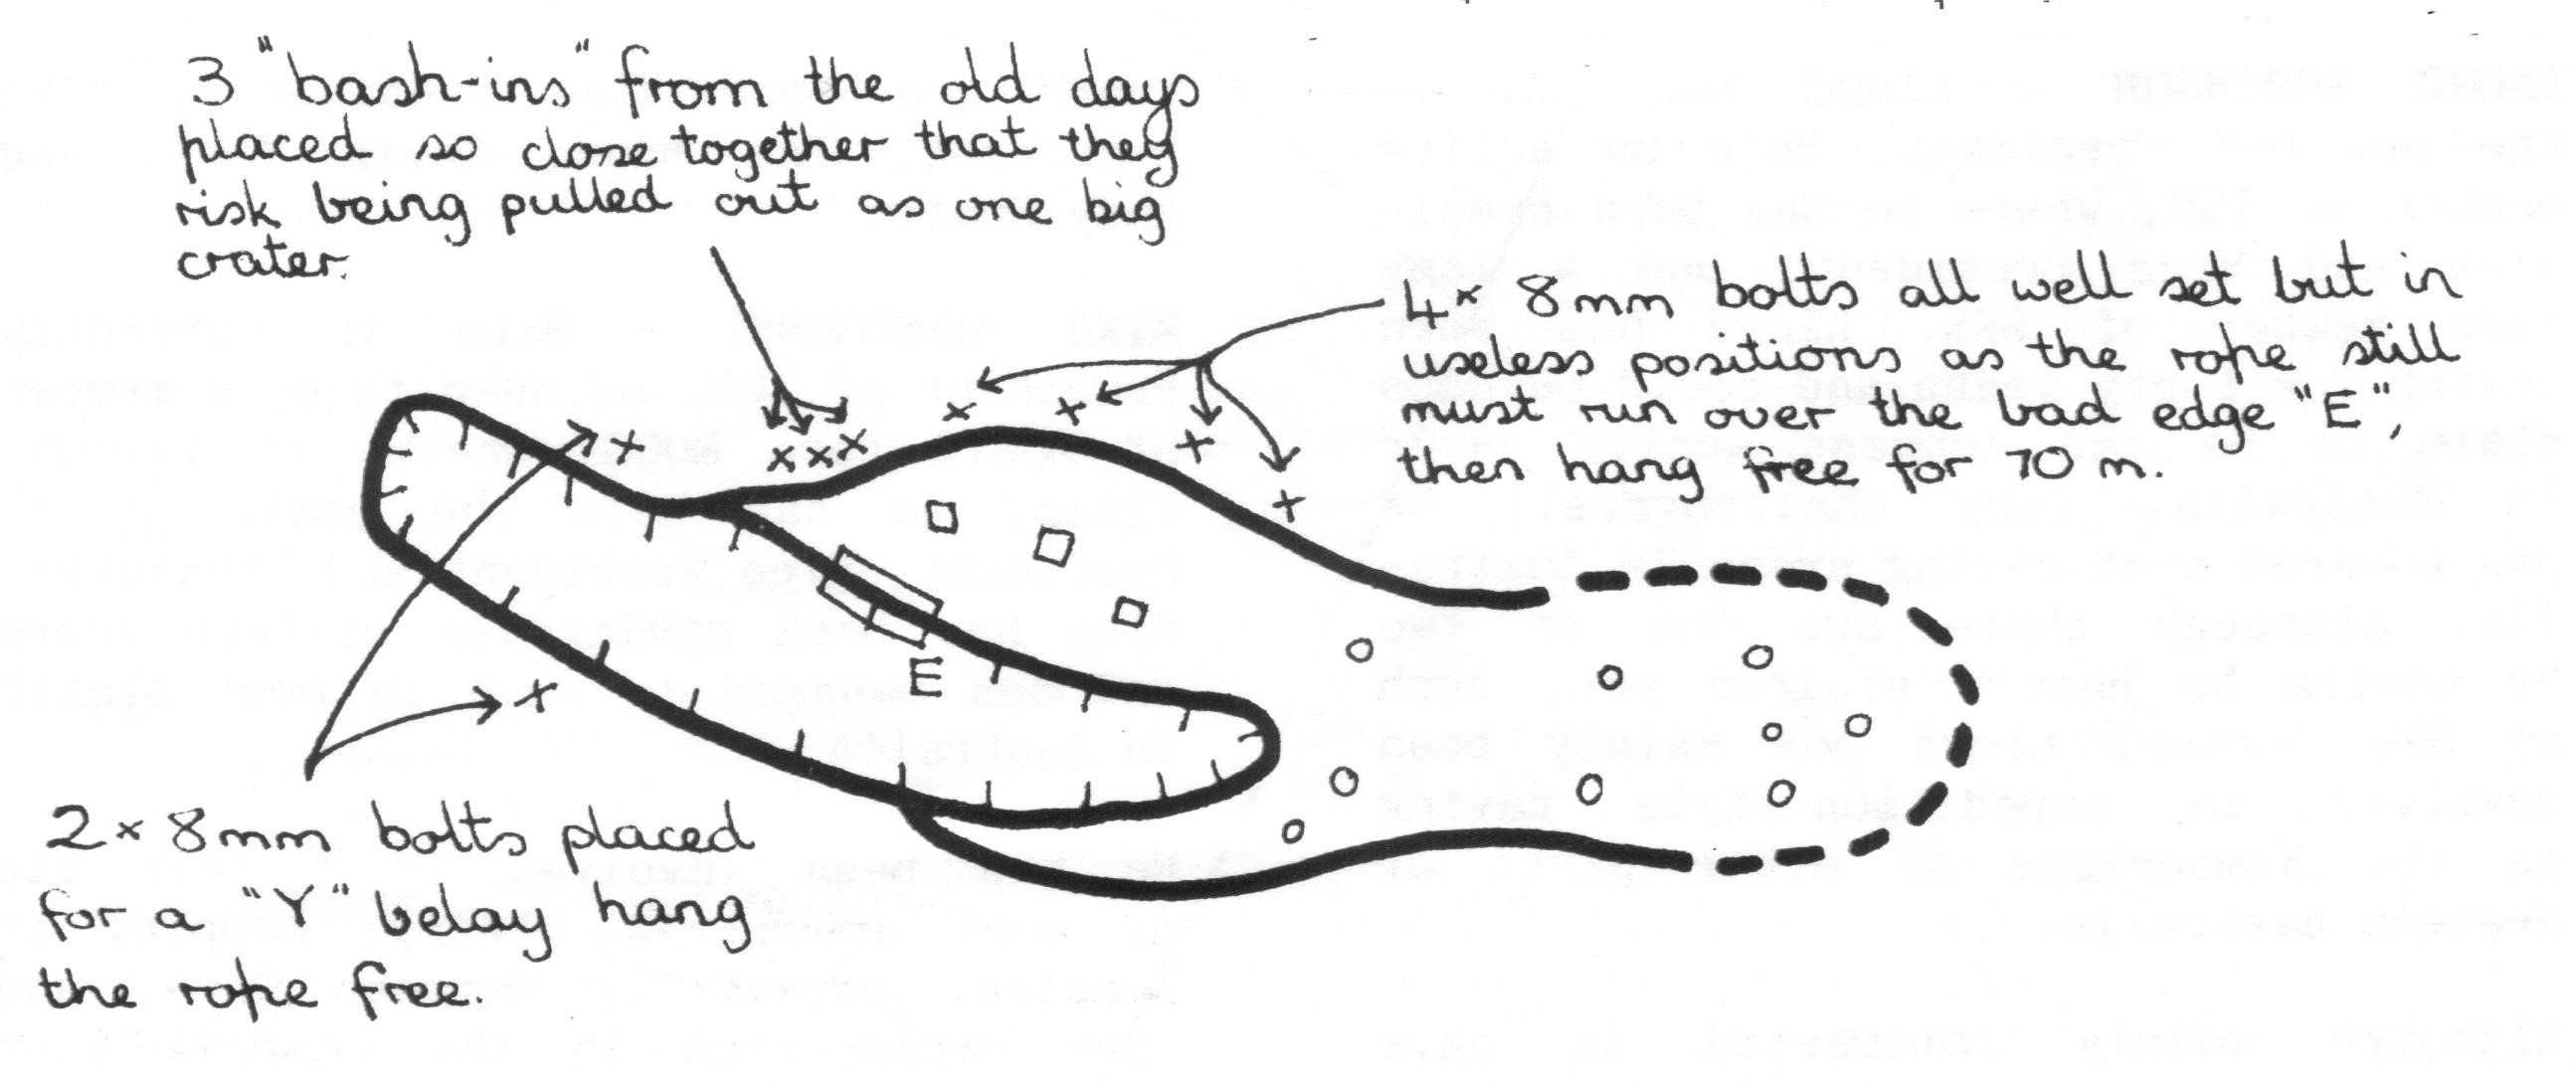 3 "bash-ins" from the old days
placed so close together that they
risk being pulled out as one big
crater.
4× 8mm bolts all well set but in
useless positions as the rope still
must run over the bad edge "E",
then hang free for 70 m.
E
2× 8mm bolts placed
for a "Y" belay hang
the rope free.